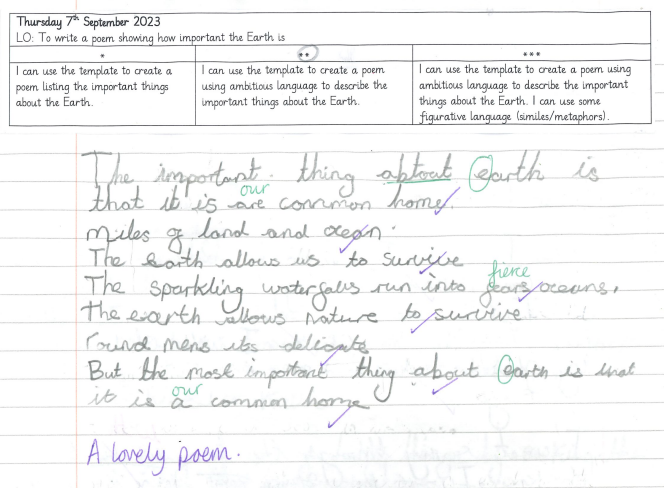 Thursday 7th September 2023
LO: To write a poem showing how important the Earth is
*
**
***
I can use the template to create a
poem listing the important things
about the Earth.
I can use the template to create a poem
using ambitious language to describe the
important things about the Earth.
I can use the template to create a poem using
ambitious language to describe the important
things about the Earth. I can use some
figurative language (similes/metaphors).
The important. thing abtout earth is
our
that it is are common home.
miles of land and ocean.
The earth allows us to survive
fierce
The sparkling waterfalls run into oceans,
the earth allows nature to survive
round mens its
But the most important thing about earth is that
our
it is a common home
A lovely poem.